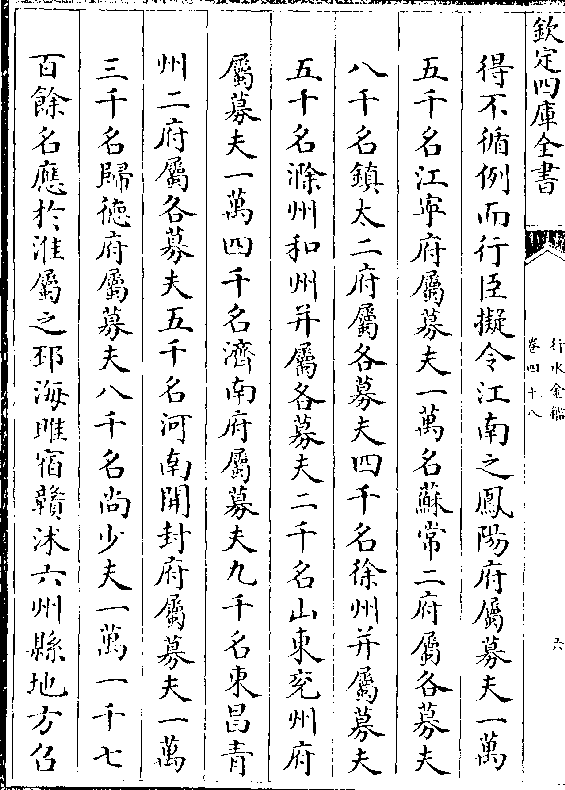 欽定四庫全書
行水金鑑
卷四十八
六
得不循例而行臣擬令江南之鳳陽府屬募夫一萬
五千名江寧府屬募夫一萬名蘇常二府屬各募夫
八千名鎮太二府屬各募夫四千名徐州并屬募夫
五千名滁州和州并屬各募夫二千名山東兖州府
屬募夫一萬四千名濟南府屬募夫九千名東昌青
州二府屬各募夫五千名河南開封府屬募夫一萬
三千名歸德府屬募夫八千名尚少夫一萬一千七
百餘名應於淮屬之邳海睢宿贛沭六州縣地方召